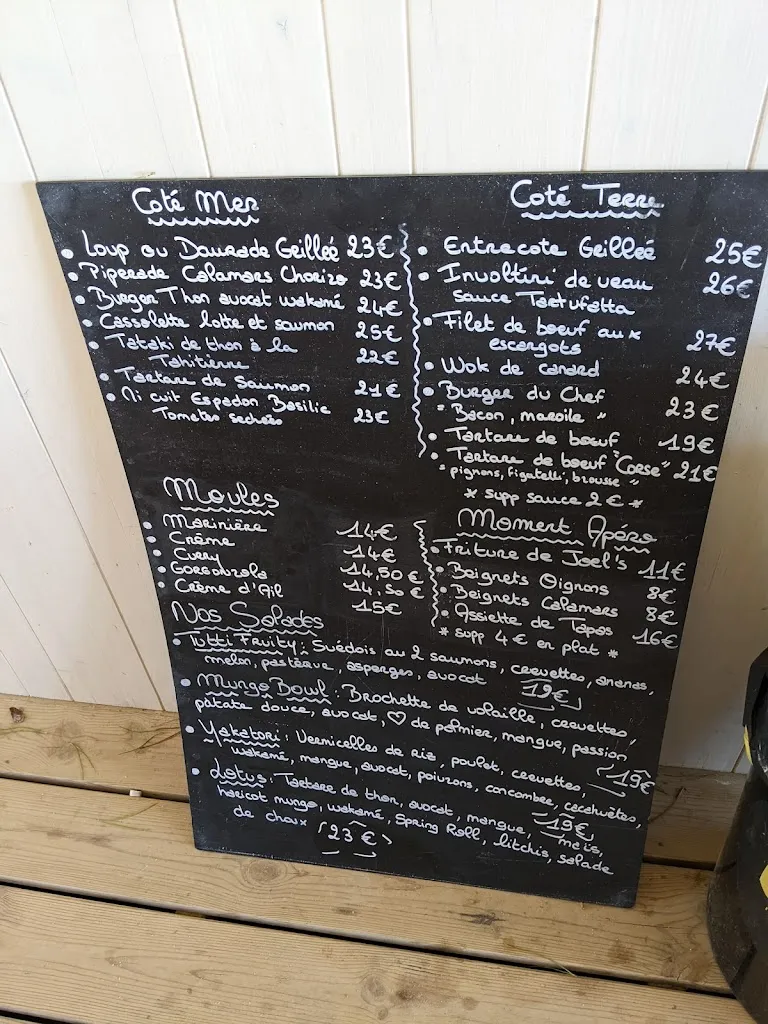 Coté Mer
• Loup ou Daurade Grillée 23€
• Piperade Calamars Chorizo 23€
• Burger Thon avocat wakamé 24€
• Cassolette lotte et saumon 25€
• Tataki de thon à la 22€
Tahitienne
• Tartare de Saumon 21€
• Mi cuit Espadon Basilic 23€
Tomates sechées
Coté Terre
• Entrecote Grilleé 25€
• Involtini de veau 26€
sauce Tartufatta
• Filet de boeuf aux
escargots 27€
• Wok de canard 24€
• Burger du Chef 23€
" Bacon, maroile "
• Tartare de boeuf 19€
• Tartare de boeuf "Corse" 21€
" pignons, figatelli, brousse "
* supp sauce 2€ *
Moules
• Marinière 14€
• Crème 14€
• Curry 14,50€
• Gorgonzola 14,50€
• Crème d'Ail 15€
Moment Apéro
• Friture de Joel's 11€
• Beignets Oignons 8€
• Beignets Calamars 8€
• Assiette de Tapas 16€
* supp 4€ en plat *
Nos Salades
• Tutti Fruity : Suédois au 2 saumons, crevettes, ananas,
melon, pastèque, asperges, avocat 19€
• Mungo Bowl : Brochette de volaille, crevettes,
patate douce, avocat, ♡ de palmier, mangue, passion 19€
• Yakatori : Vermicelles de riz, poulet, crevettes,
wakamé, mangue, avocat, poivrons, concombre, cacahuètes, 19€
• Lotus : Tartare de thon, avocat, mangue, maïs,
haricot mungo, wakamé, Spring Roll, litchis, salade
de choux 23€